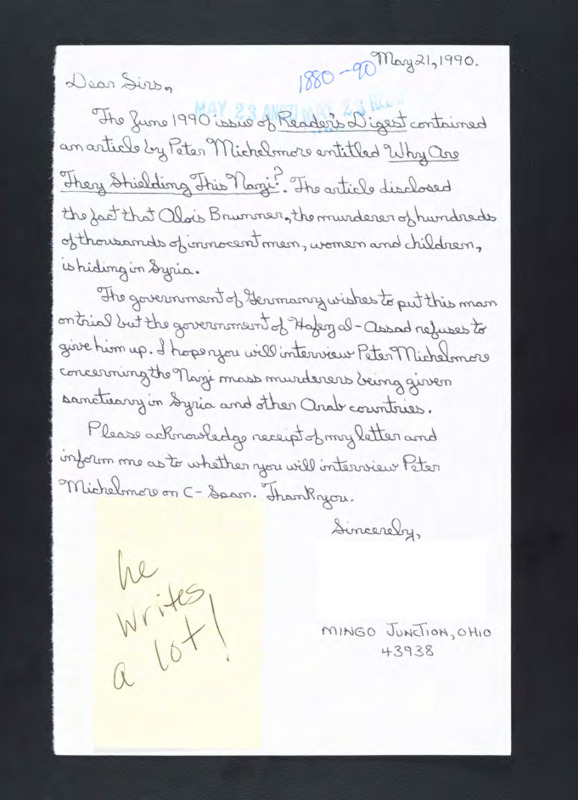 May 21, 1990.
1880-90
Dear Sirs,
MAY 23 MAY 23
The June 1990 issue of Reader's Digest contained
an article by Peter Michelmore entitled Why Are
They Shielding This Nazi?. The article disclosed
the fact that Alois Brunner, the murderer of hundreds
of thousands of innocent men, women and children,
is hiding in Syria.
The government of Germany wishes to put this man
on trial but the government of Hafez al-Assad refuses to
give him up. I hope you will interview Peter Michelmore
concerning the Nazi mass murderers being given
sanctuary in Syria and other Arab countries.
Please acknowledge receipt of my letter and
inform me as to whether you will interview Peter
Michelmore on C-Span. Thank you.
Sincerely,
he
writes
a lot!
MINGO JUNCTION, OHIO
43938